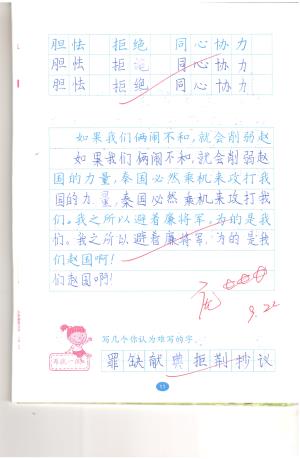 胆怯 拒绝 同心协力
胆怯 拒绝 同心协力
胆怯 拒绝 同心协力
如果我们俩闹不和,就会削弱赵
如果我们俩闹不和,就会削弱赵
国的力量,秦国必然乘机来攻打我
国的力量,秦国必然乘机来攻打我
们。我之所以避着廉将军,为的是我
们。我之所以避着廉将军,为的是我
们赵国啊!
们赵国啊!
9.22
写几个你认为难写的字。
罪 缺 献 典 拒 荆 抄 议
11